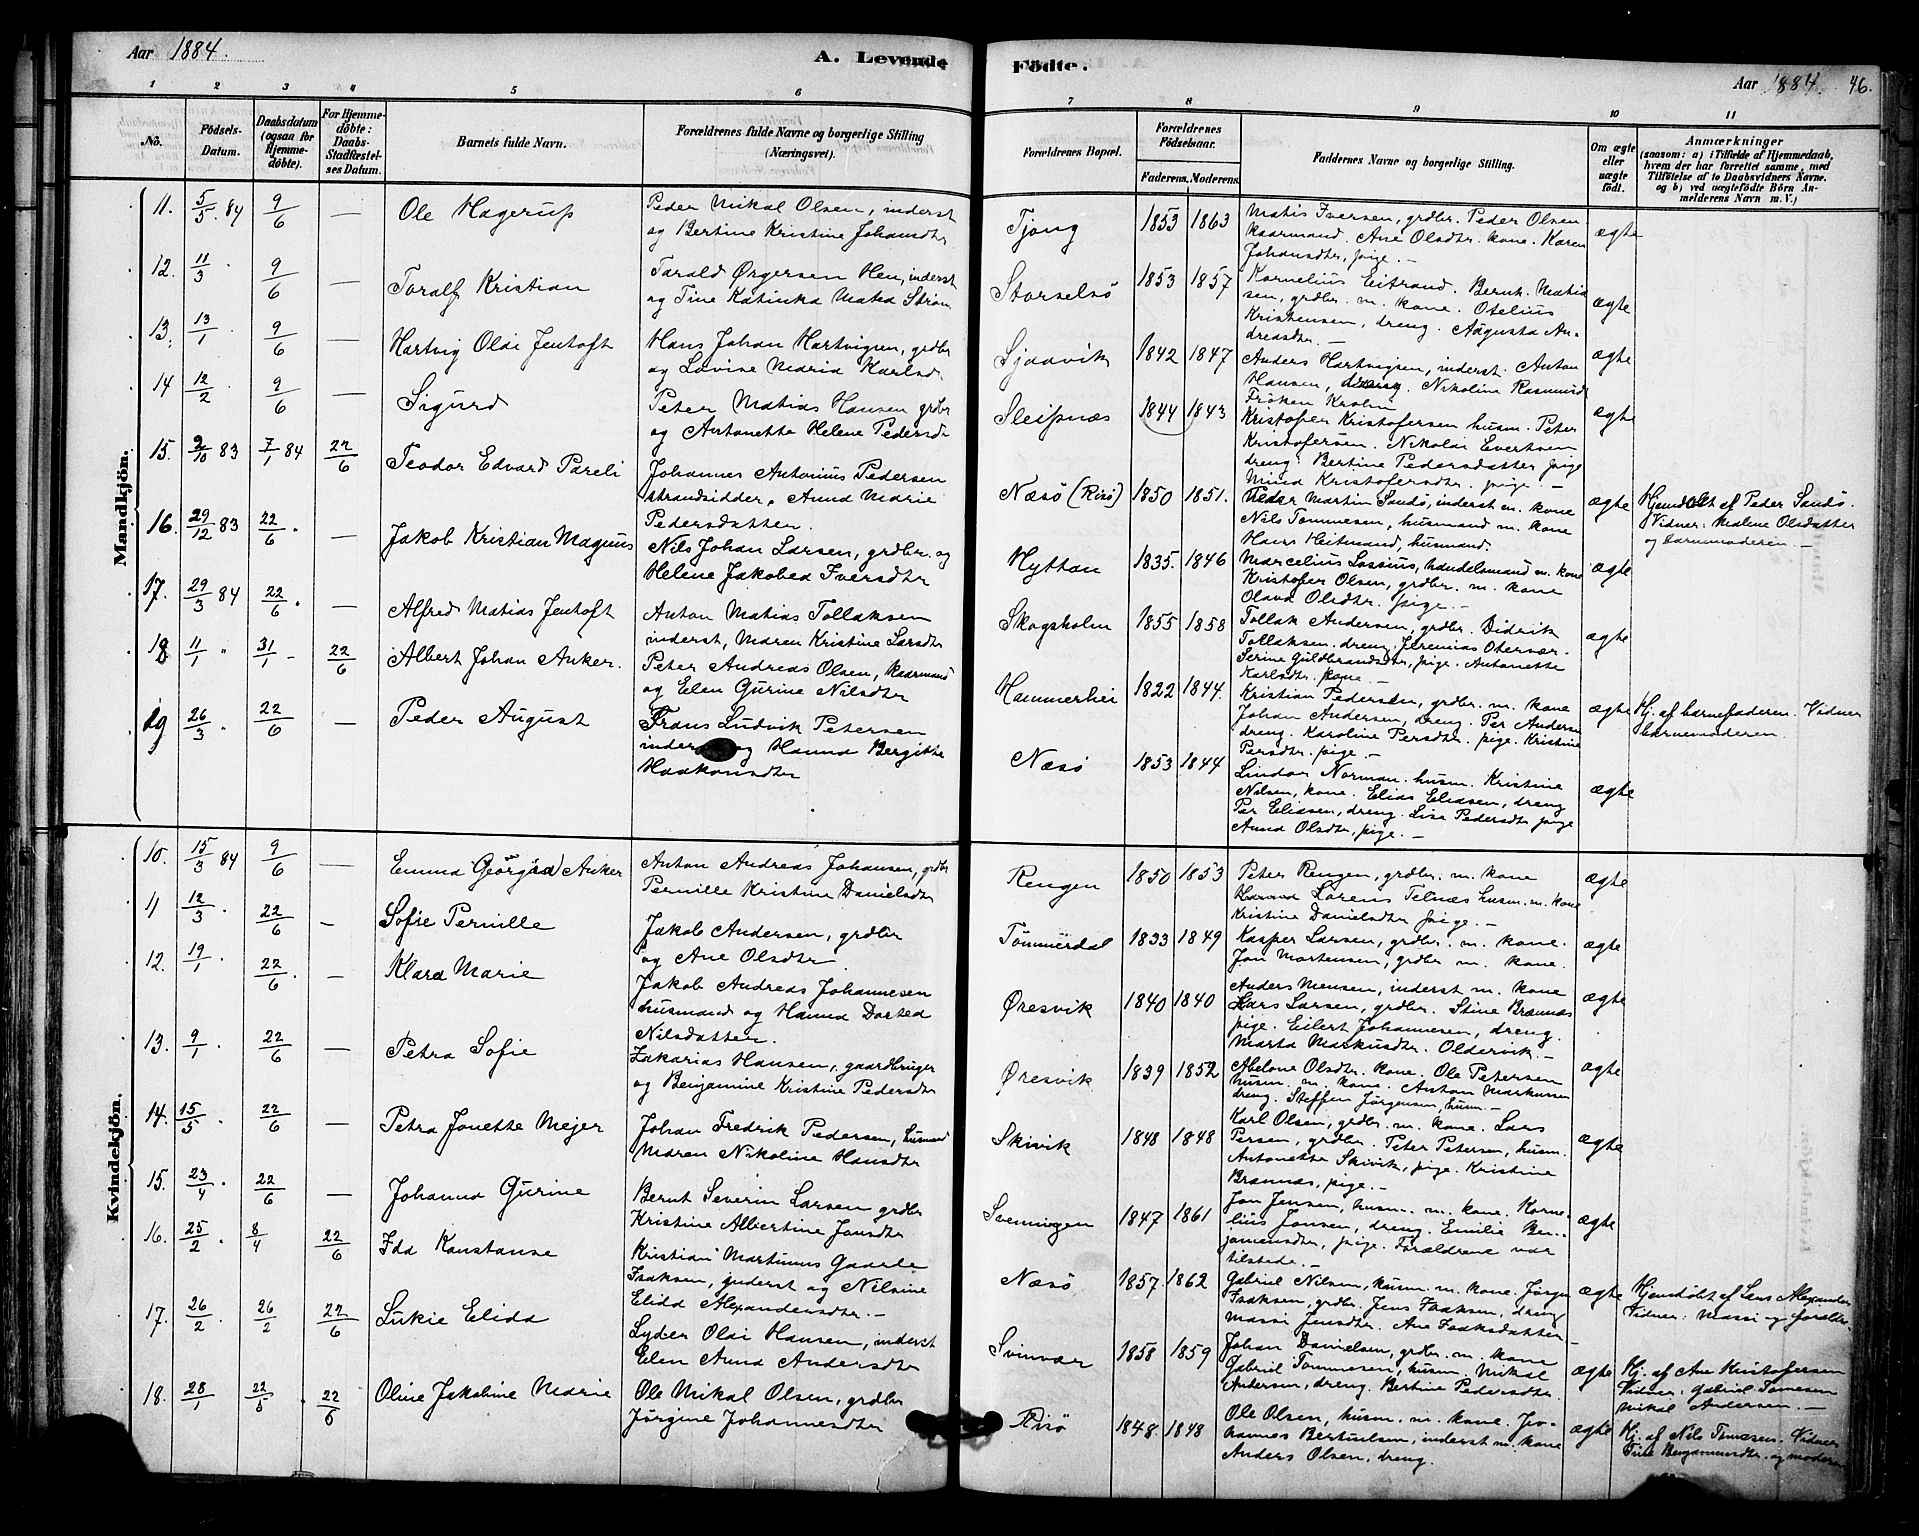 Aar 1884.
A. Levende Födte.
Aar 1884. 46.
1 2 3 4 5 6 7 8 9 10 11
No.
Födsels-Datum.
Daabsdatum (ogsaa for Hjemmedöbte).
For Hjemmedöbte: Daabs-Stadfæstelses Datum.
Barnets fulde Navn.
Forældrenes fulde Navne og borgerlige Stilling (Næringsvei).
Forældrenes Bopæl.
Forældrenes Födselsaar.
Faderens. Moderens.
Faddernes Navne og borgerlige Stilling.
Om ægte eller uægte födt.
Anmærkninger
(saasom: a) i Tilfælde af Hjemmedaab, hvem der har forrettet samme, med Tilföielse af to Daabsvidners Navne. og b) ved uægtefödte Börn Anmelderens Navn m. V.)
Mandkjön.
11. 5/5. 84 9/6 — Ole Hagerup
Peder Mikal Olsen, inderst
og Bertine Kristine Johansdtr.
Tjong 1853 1863
Matis Iversen, grdbr. Peder Olsen
kaarmand. Ane Olsdtr. kone. Karen
Johansdtr, pige. —
ægte
12. 11/3 . 9/6 — Toralf Kristian
Tarald Ørgersen Hen, inderst
og Tine Katinka Matea Strøm
Storselsö 1853 1857
Kornelius Eitrand. Bernt Matis
sen, grdbr. m. kone. Otelius
Kristensen, dreng. Augusta An-
dreasdtr. —
ægte
13. 13/1 . 9/6 — Hartvig Olai Jentoft
Hans Johan Hartvigsen, grdbr
og Lovise Maria Karlsd.
Sjaavik 1842 1847
Anders Hartvigsen, inderst. Anton
Hansen, dreng. Nikoline Rasmusd
Fröken Krohn
ægte
14 12/2 . 9/6 — Sigurd
Peter Matias Hansen grdbr
og Antonette Helene Pedersd.
Sleipnæs 1844 1843
Kristofer Kristofersen husm. Peter
Kristofersen. Nikolai Evertsen
dreng. Bertine Pedersdatter pige
Mina Kristofersdtr. pige —
ægte
15. 2/10 83 7/1 84 22/6 Teodor Edvard Pareli
Johannes Antonius Pedersen
strandsidder, Anna Marie
Pedersdatter.
Næsö (Risö) 1850 1851.
Peder Martin Sandö, inderst m. kone
Nils Tommesen, husmand m. kone
Hans Heitmand, husmand.
ægte
Hjemdöbt af Peder Sandö.
Vidner: Malene Olsdatter
og barnemoderen. —
16. 29/12 83 22/6 . — Jakob Kristian Magnus
Nils Johan Larsen, grdbr. og
Helene Jakobea Iversdtr
Hyttan 1835. 1846
Marcelius Lossius, handelsmand m. kone
Kristofer Olsen, grdbr. m. kone
Olava Olsdtr. pige. —
ægte
17. 29/3 84 22/6 . — Alfred Matias Jentoft
Anton Matias Tollaksen
inderst, Maren Kristine Larsdtr
Skogsholm 1855 1858
Tollak Andersen, grdbr. Didrik
Tollaksen, dreng. Jeremias Otervær.
Serine Guldbrandsdtr, pige. Antonette
Karlsdtr. kone. —
ægte
18 11/1 " 31/1 — 22/6 Albert Johan Anker.
Peter Andreas Olsen, kaarmand
og Elen Gurine Nilsdtr
Hammerhei 1822 1844.
Kristian Pedersen, grdbr. m. kone
Johan Andersen, dreng. Per Andersen
dreng. Karoline Persdtr. pige. Kristine
Persdtr. pige. —
ægte
Hj. af barnefaderen. Vidner
barnemoderen.
19 26/3 . 22/6 — Peder August
Frans Ludvik Petersen
og Hanna Bergitte
Haakonsdtr
Næsö 1853 1844
Lindor Norman. husm. Kristine
Nilsen, kone. Elias Eliasen, dreng
Per Eliasen, dreng. Lise Pedersdtr pige
Anna Olsdtr, pige. —
ægte
Kvindekjön.
10. 15/3 84 9/6 — Emma Georgia Anker
Anton Andreas Johansen, grdbr
Pernille Kristine Danielsdtr
Rengen 1850 1853
Peter Rengen, grdbr. m. kone
Lorens Telnæs husm. m. kone
Kristine Danielsdtr pige. —
ægte
11 12/3 . 22/6 — Sofie Pernille
Jakob Andersen, grdbr
og Ane Olsdtr.
Tömmerdal 1833 1849
Kasper Larsen, grdbr. m. kone.
Jon Mortensen, grdbr m. kone.
ægte
12. 19/1 . 22/6 . — Klara Marie
Jakob Andreas Johannesen
husmand og Hanna Dortea
Nilsdatter.
Øresvik 1840 1840
Anders Mensen, inderst m. kone
Lars Larsen, grdbr. Stine Brænnæs
pige. Eilert Johannesen, dreng.
Marta Markusdtr. Oldervik. —
ægte
13. 9/1 . 22/6 — Petra Sofie
Zakarias Hansen, gaardbruger
og Benjamine Kristine Pedersdtr
Øresvik 1839 1852
Abelone Olsdtr. kone. Ole Petersen
husm. m. kone. Anton Markussen
dreng. Steffen Jörgensen, husm. —
ægte
14. 15/5 . 22/6 — Petra Jonette Mejer
Johan Fredrik Pedersen, husmand
Maren Nikoline Hansdtr
Skivik 1848 1848
Karl Olsen, grdbr. m. kone. Lars
Persen, grdbr. Peter Petersen, husm.
Antonette Skivik, pige. Kristine
Brænnæs, pige. —
ægte
15. 23/4 . 22/6 — Johanna Gurine
Bernt Severin Larsen grdbr
Kristine Albertine Jonsdtr
Svenningen 1847 1861
Jon Jensen, husm. m. kone. Korne-
lius Jonsen, dreng. Emilie Ben-
jamensdtr, pige. Forældrene var
tilstede. —
ægte
16. 25/2 . 8/4 22/6 Ida Konstanse
Kristian Martinus Gaarde
Isaksen, inderst og Nilsine
Elida Alexandersdtr. —
Næsö 1857. 1862
Gabriel Nilsen, husm. m. kone. Jörgen
Isaksen, grdbr. Jens Isaksen, dreng
Massi Jensdtr. Ane Isaksdatter —
ægte
Hjemdöbt af Lars Alexander
Vidner: Massi og forældr.
17. 26/2 . 26/2 22/6 Lukie Elida
Lyder Olai Hansen, inderst
Elen Anna Andersdtr
Svinvær 1858 1859
Johan Danielsen, grdbr. m. kone
Gabriel Tommesen, husm Mikal
Andersen, dreng. Bertine Pedersdtr.
ægte
Hj. af Ane Kristofersen
Vidner: Gabriel Tomesen
Mikal Andersen. —
18. 28/1 22/6 . 22/6 Oline Jakobine Marie
Ole Mikal Olsen, grdbr
Jörgine Johannesdtr
Risö 1848. 1848
Ole Olsen, husm. m. kone. Jo-
hannes Bertielsen, inderst m. kone
Anders Olsen, dreng.
ægte
Hj. af Nils Tomesen. Vidner
Trile Benjaminsdtr. og moderen